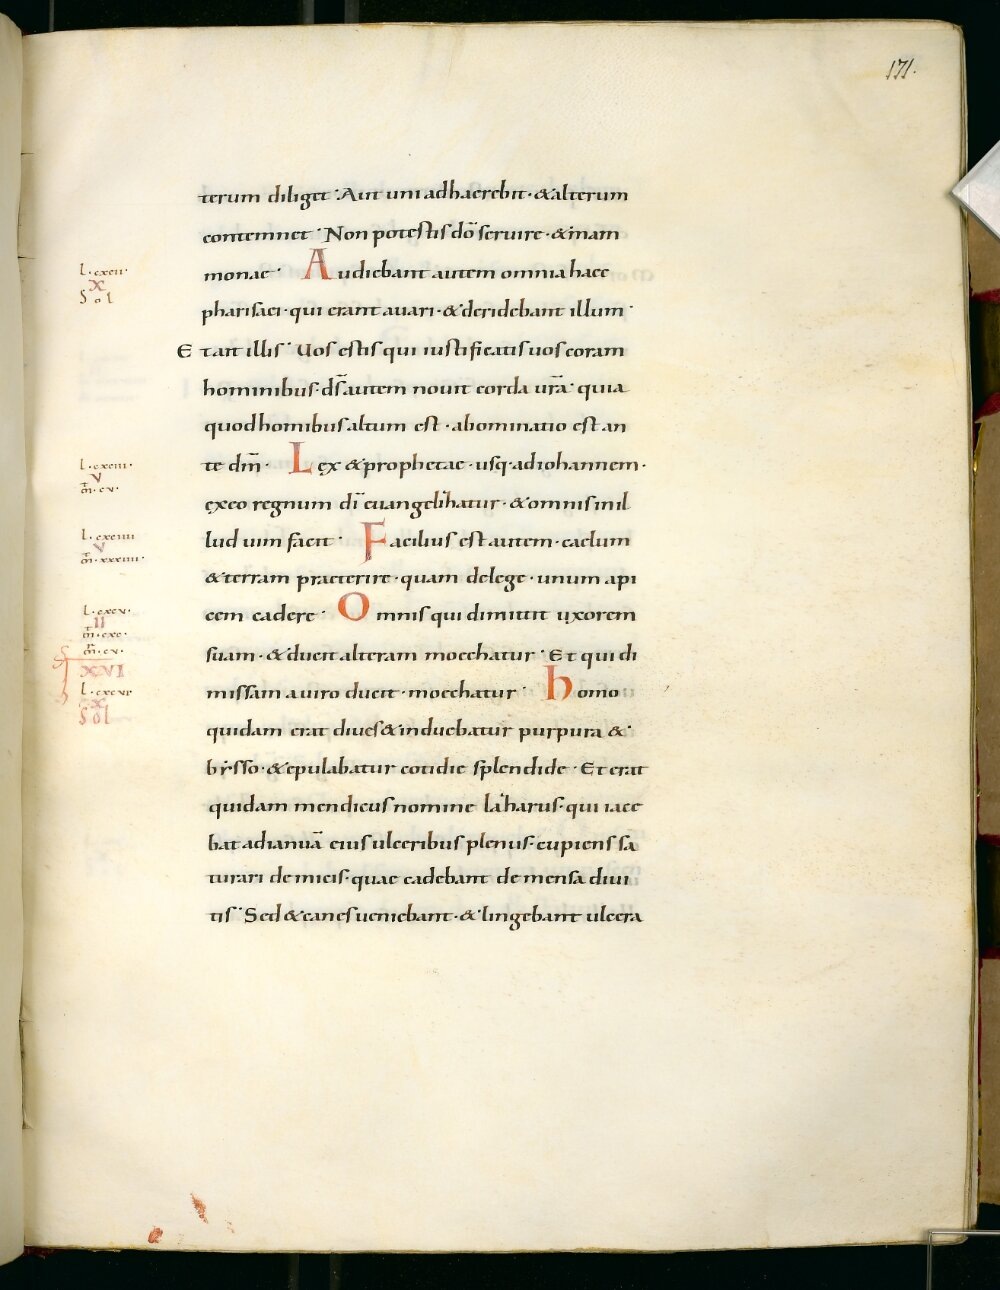 171.
terum diliget · Aut uni adhaerebit · & alterum
contemnet · Non potestis dō seruire · & mam
monae · Audiebant autem omnia haec
pharisaei · qui erant auari · & deridebant illum ·
Et ait illis · Uos estis qui iustificatis uos coram
hominibus · ds̄ autem nouit corda urā · quia
quod hominibus altum est · abominatio est an
te dm̄ · Lęx & prophetae · usq· ad iohannem ·
ęx eo regnum dī euangelizatur · & omnis in il
lud uim facit · Facilius est autem · caelum
& terram praeterire · quam de lege · unum api
cem cadere · Omnis qui dimittit uxorem
suam · & ducit alteram moechatur · Et qui di
missam a uiro ducit · moechatur · homo
quidam erat diues & induebatur purpura & ·
bysso · & epulabatur cotidie splendide · Et erat
quidam mendicus nomine lazarus · qui iace
bat ad ianuā eius ulceribus plenus · cupiens sa
turari de micis · quae cadebant de mensa diui
tis · Sed & canes ueniebant · & lingebant ulcera
L · cxcii ·
X
Sol
L · cxciii ·
V
m̄ · cv ·
L · cxciiii
V
m̄ · xxxiiii ·
L · cxcv ·
II
m̄ · cxc ·
m̄ · cv ·
XVI
L · cxcvi
X
Sol